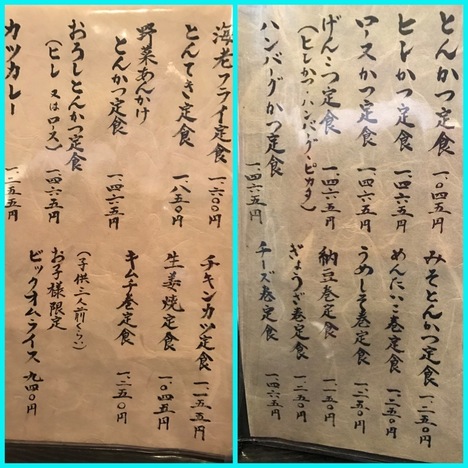 とんかつ定食 一、〇四五円
ヒレかつ定食 一、四六五円
ロースかつ定食 一、四六五円
げんこつ定食 一、四六五円
(ヒレかつ・ハンバーグ・ピカタ)
ハンバーグかつ定食 一、四六五円
みそとんかつ定食 一、二五〇円
めんたいこ巻定食 一、二五〇円
うめしそ巻定食 一、二五〇円
納豆巻定食 一、一五〇円
ぎょうざ巻定食 一、一五〇円
チーズ巻定食 一、四六五円
海老フライ定食 一、六〇〇円
とんてき定食 一、八五〇円
野菜あんかけ
とんかつ定食 一、四六五円
おろしとんかつ定食 一、四六五円
(ヒレ又はロース)
カツカレー 一、一五五円
チキンカツ定食 一、一五五円
生姜焼定食 一、〇四五円
キムチ巻定食 一、二五〇円
(子供三人前くらい)
お子様限定
ビックオムライス 九四〇円